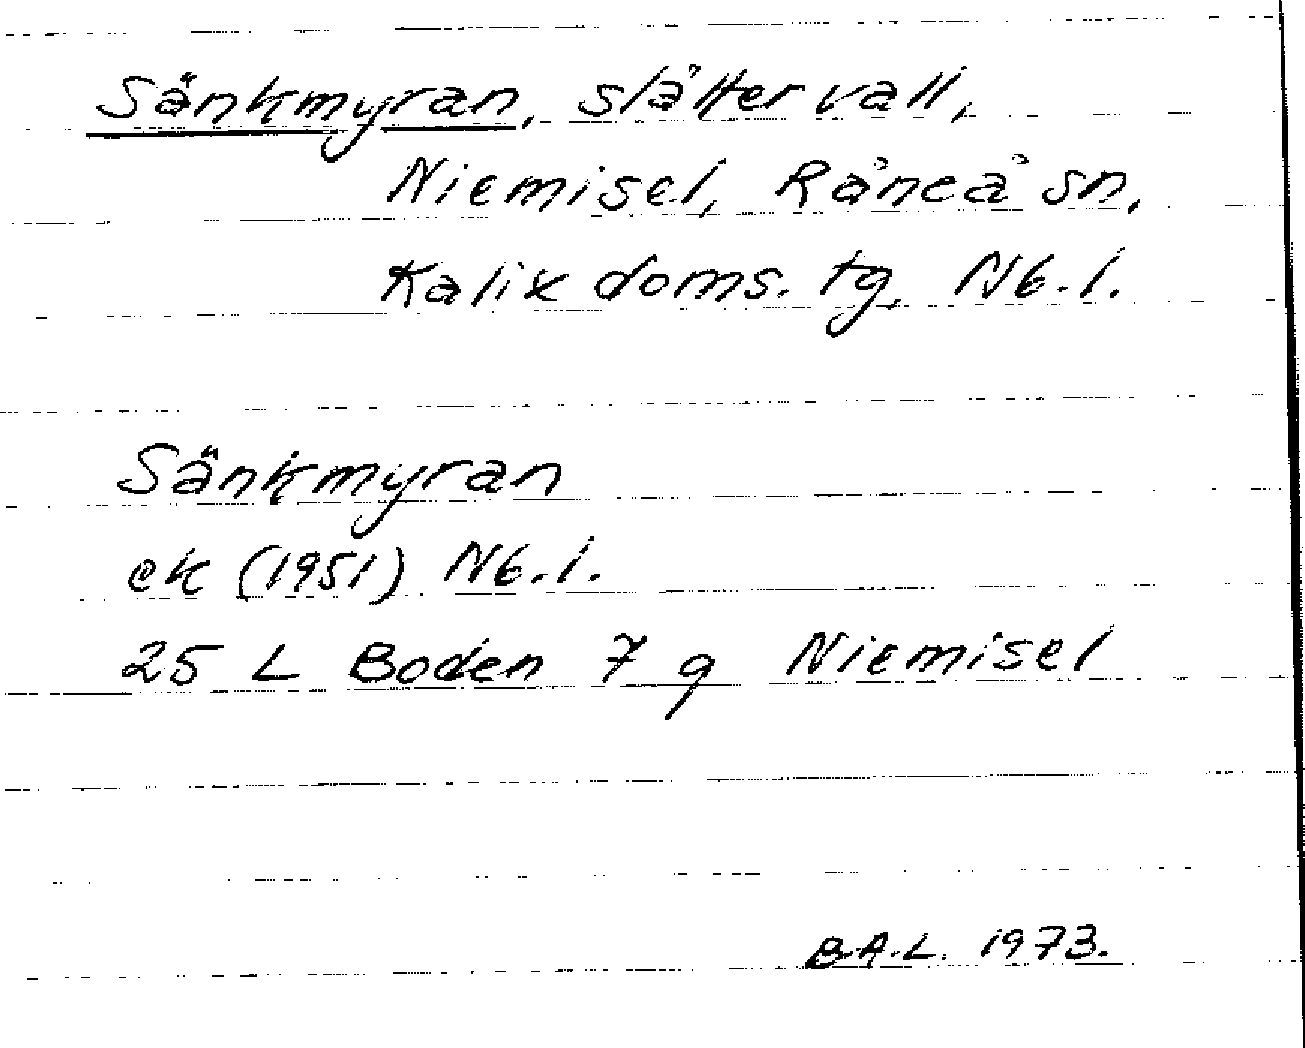 Sänkmyran, slåttervall,
Niemisel, Råneå sn,
Kalix doms. tg, Nb. l.
Sänkmyran
ek (1951) Nb. l.
25 L Boden 7 g Niemisel
B.A.L. 1973.